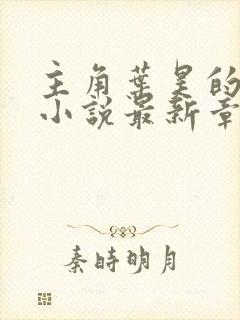 主角葉昊的
小説最新章
秦時明月